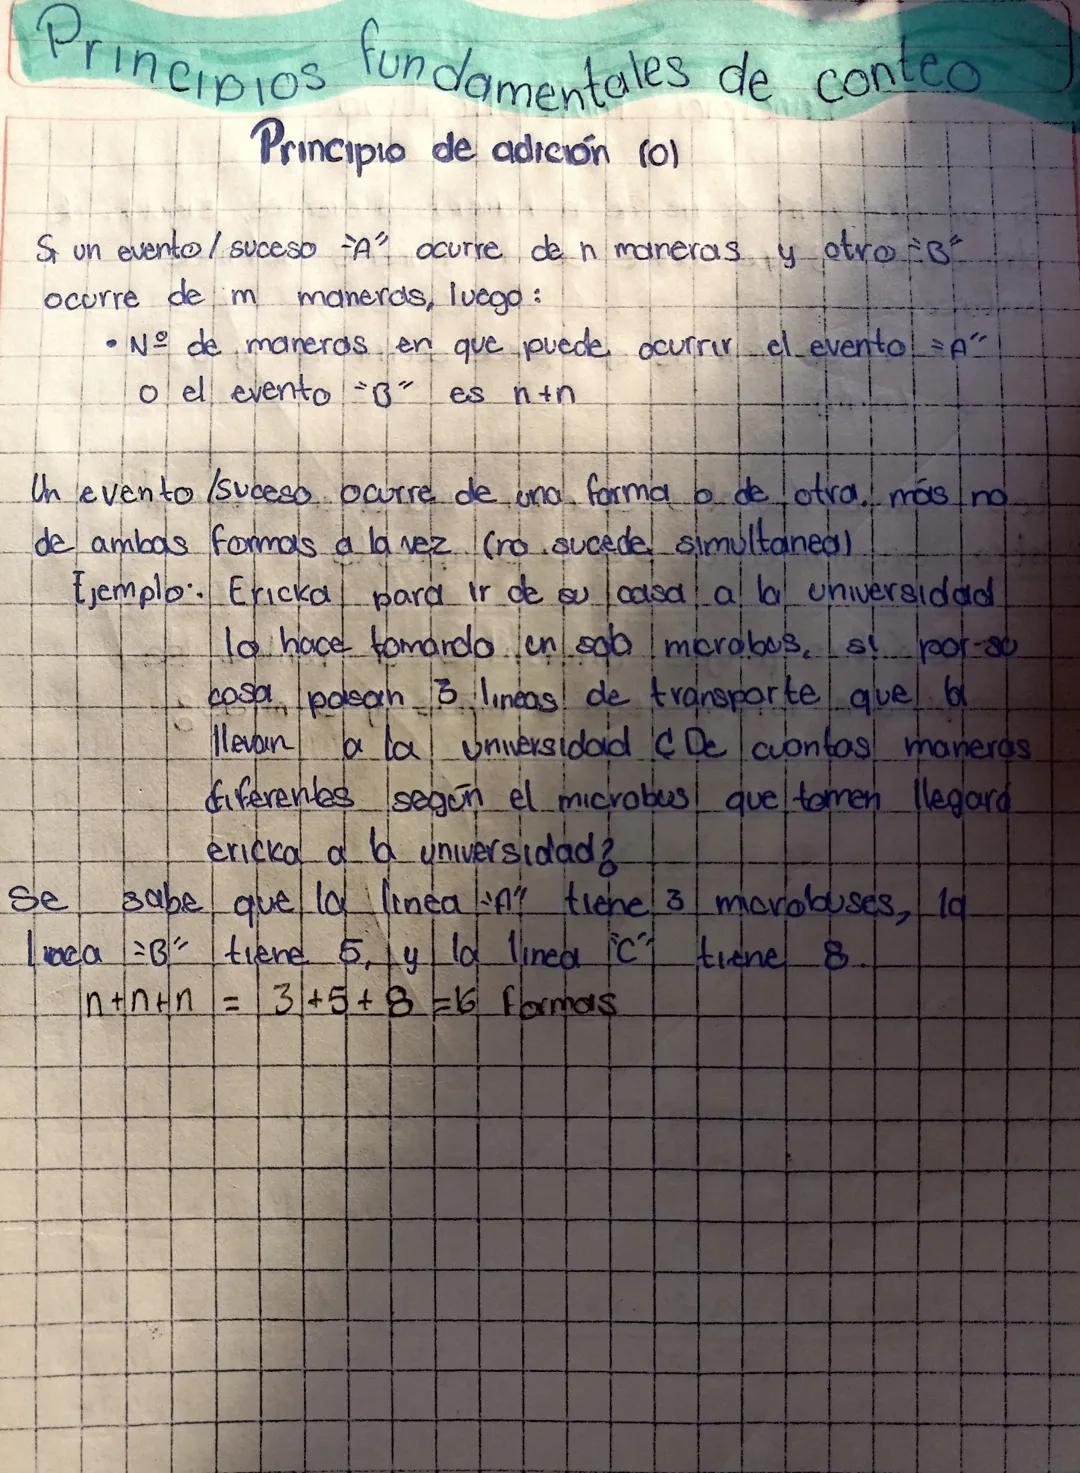 Principios fundamentales de conteo
Principio de adición (o)
Si un evento/suceso "A" ocurre de n maneras y otro "B"
ocurre de m maneras, luego:
• Nº de maneras en que puede ocurrir el evento "A"
o el evento "B" es n+n
Un evento/suceso ocurre de una forma o de otra, más no
de ambas formas a la vez (no sucede simultanea)
Ejemplo: Ericka para ir de su casa a la universidad
lo hace tomando un solo microbus, si por su
casa pasan 3 lineas de transporte que la
llevan a la universidad ¿De cuantas maneras
diferentes según el microbus que tomen llegará
ericka a la universidad?
Se sabe que la linea "A" tiene 3 microbuses, la
linea "B" tiene 5, y la linea "C" tiene 8.
n+n+n = 3+5+8 =16 formas